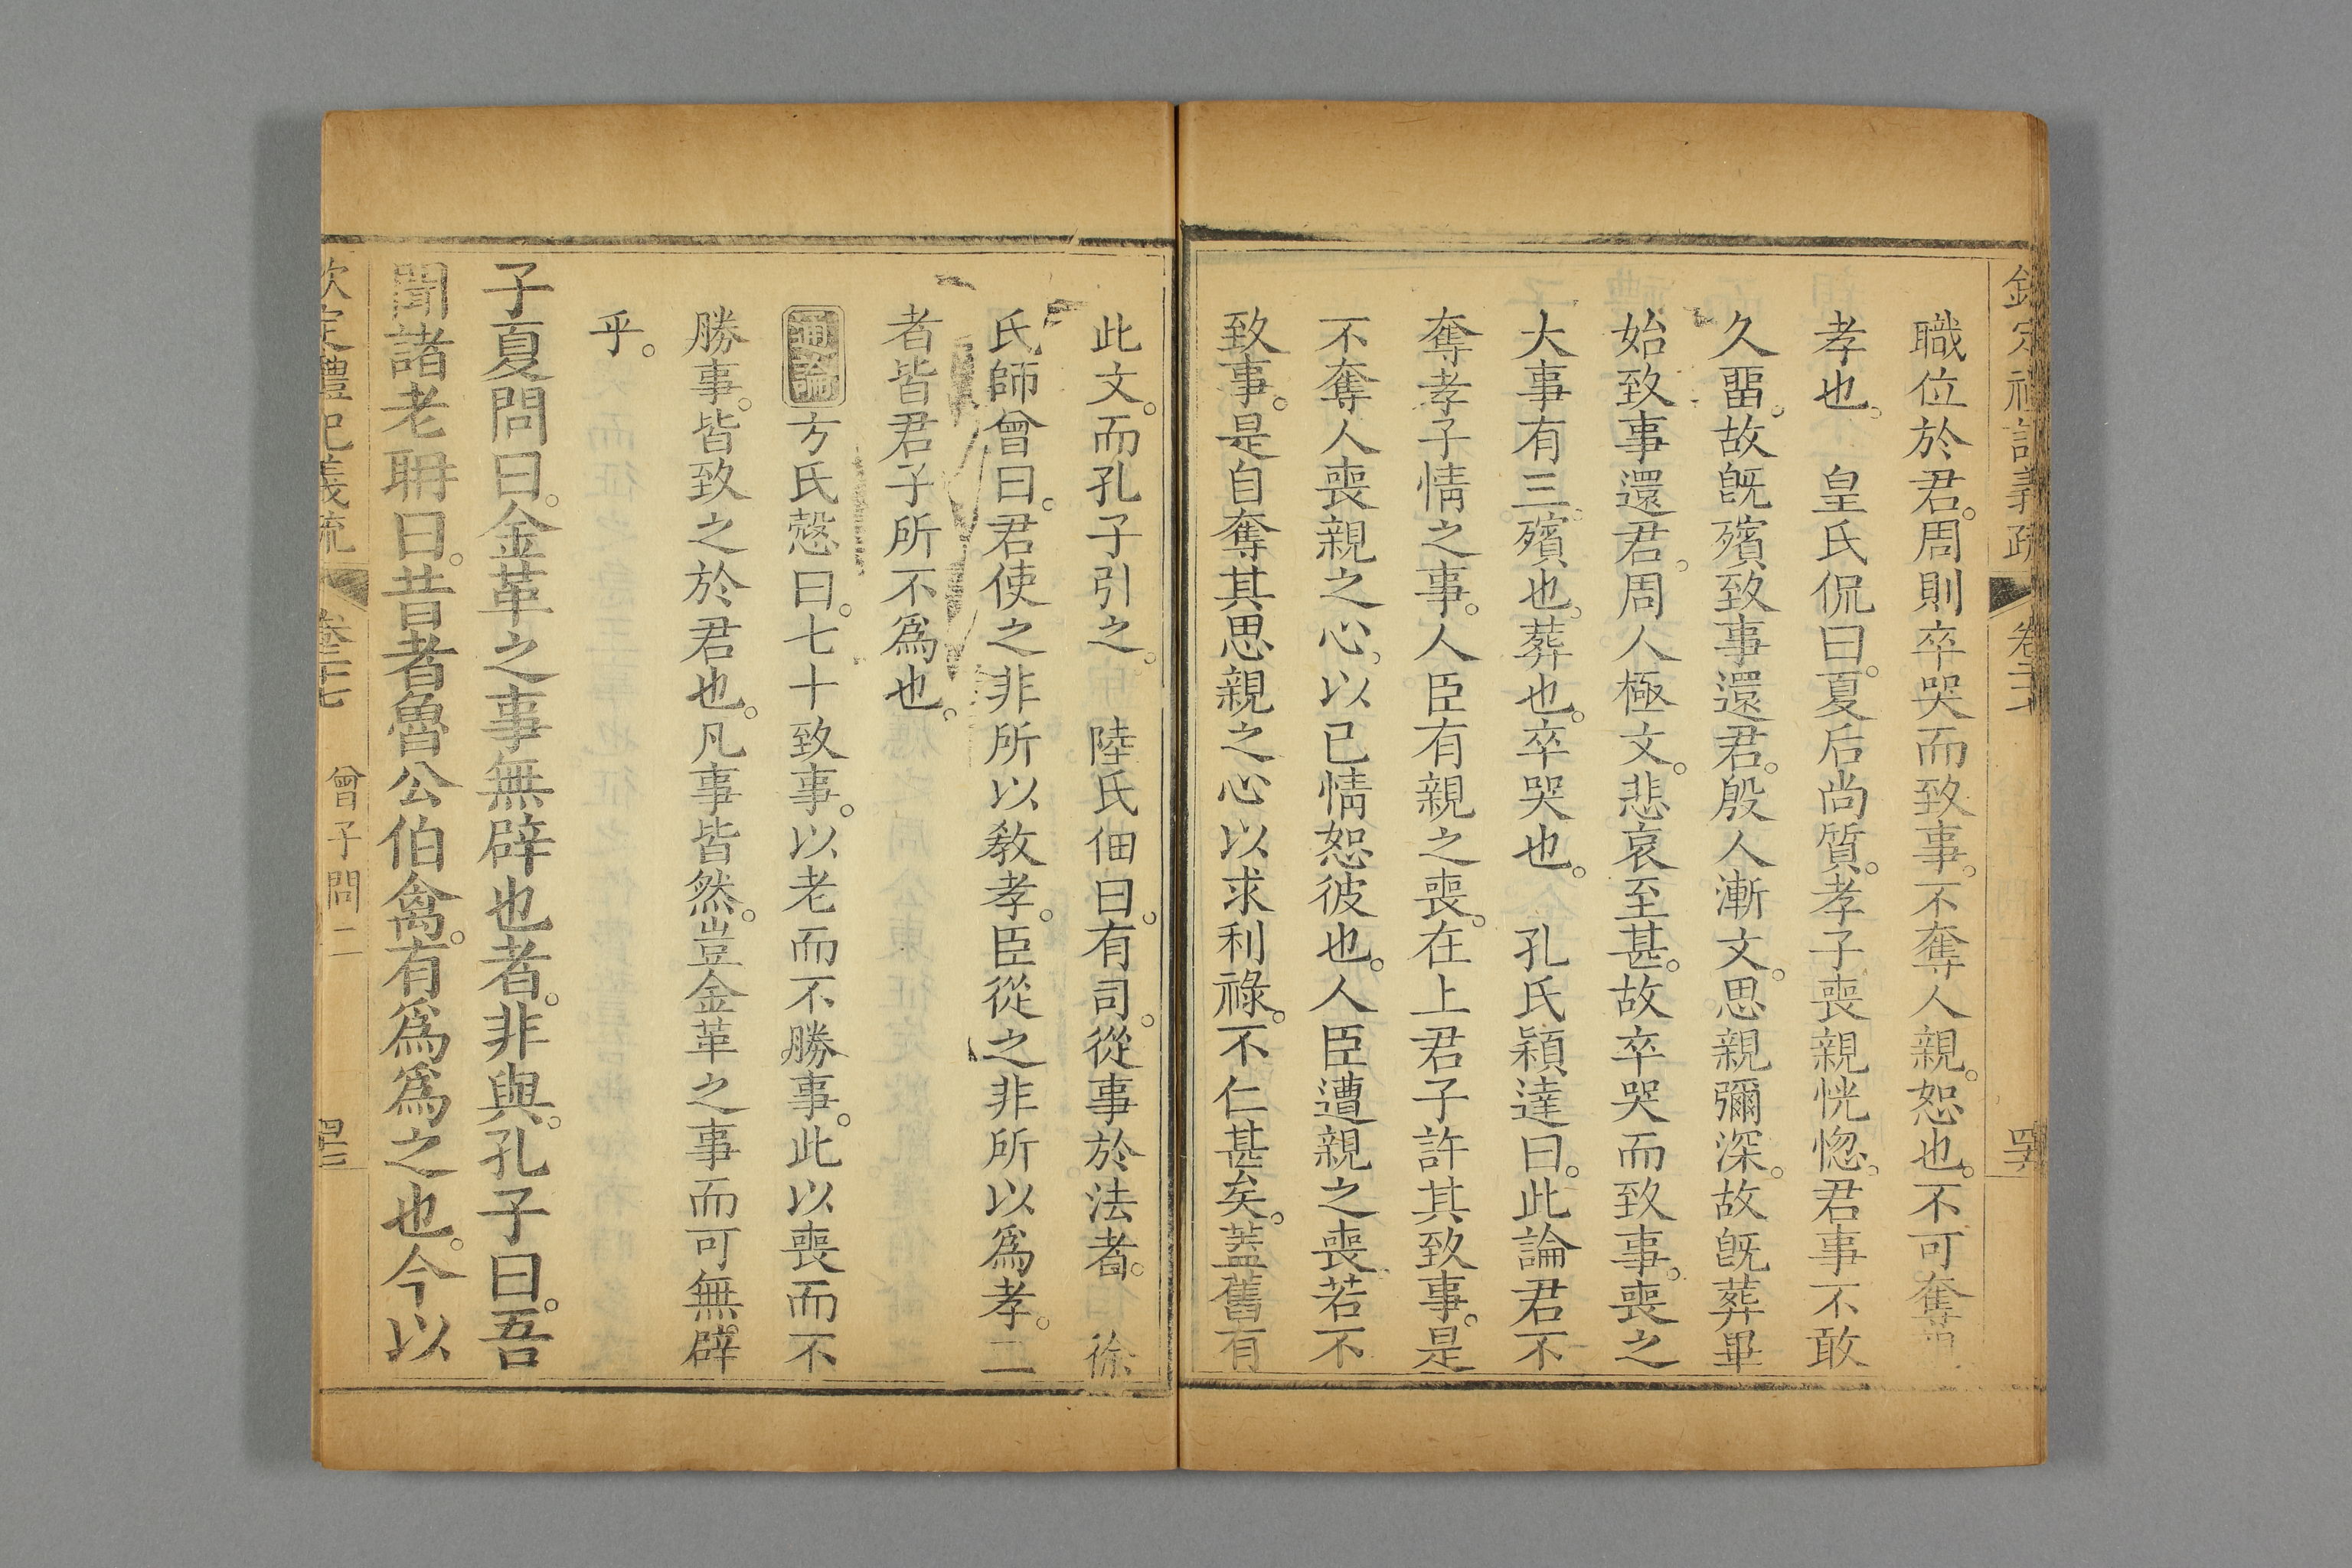 欽定禮記義疏 卷二十七
職位於君。周則卒哭而致事。不奪人親。恕也。不可奪
孝也。　皇氏侃曰。夏后尚質。孝子喪親恍惚。君事不敢
久畱。故旣殯致事還君。殷人漸文。思親彌深。故旣葬畢
始致事還君。周人極文。悲哀至甚。故卒哭而致事。喪之
大事有三。殯也。葬也。卒哭也。　孔氏穎達曰。此論君不
奪孝子情之事。人臣有親之喪。在上君子許其致事。是
不奪人喪親之心。以已情恕彼也。人臣遭親之喪。若不
致事。是自奪其思親之心以求利祿。不仁甚矣。蓋舊有
此文。而孔子引之。　陸氏佃曰。有司。從事於法者。　徐
氏師曾曰。君使之非所以敎孝。臣從之非所以爲孝。二
者皆君子所不爲也。
通論 方氏愨曰。七十致事。以老而不勝事。此以喪而不
勝事。皆致之於君也。凡事皆然。豈金革之事而可無辟
乎。
子夏問曰。金革之事無辟也者。非與。孔子曰。吾
聞諸老耼曰。昔者魯公伯禽。有爲爲之也。今以
欽定禮記義疏 卷二十七 曾子問二